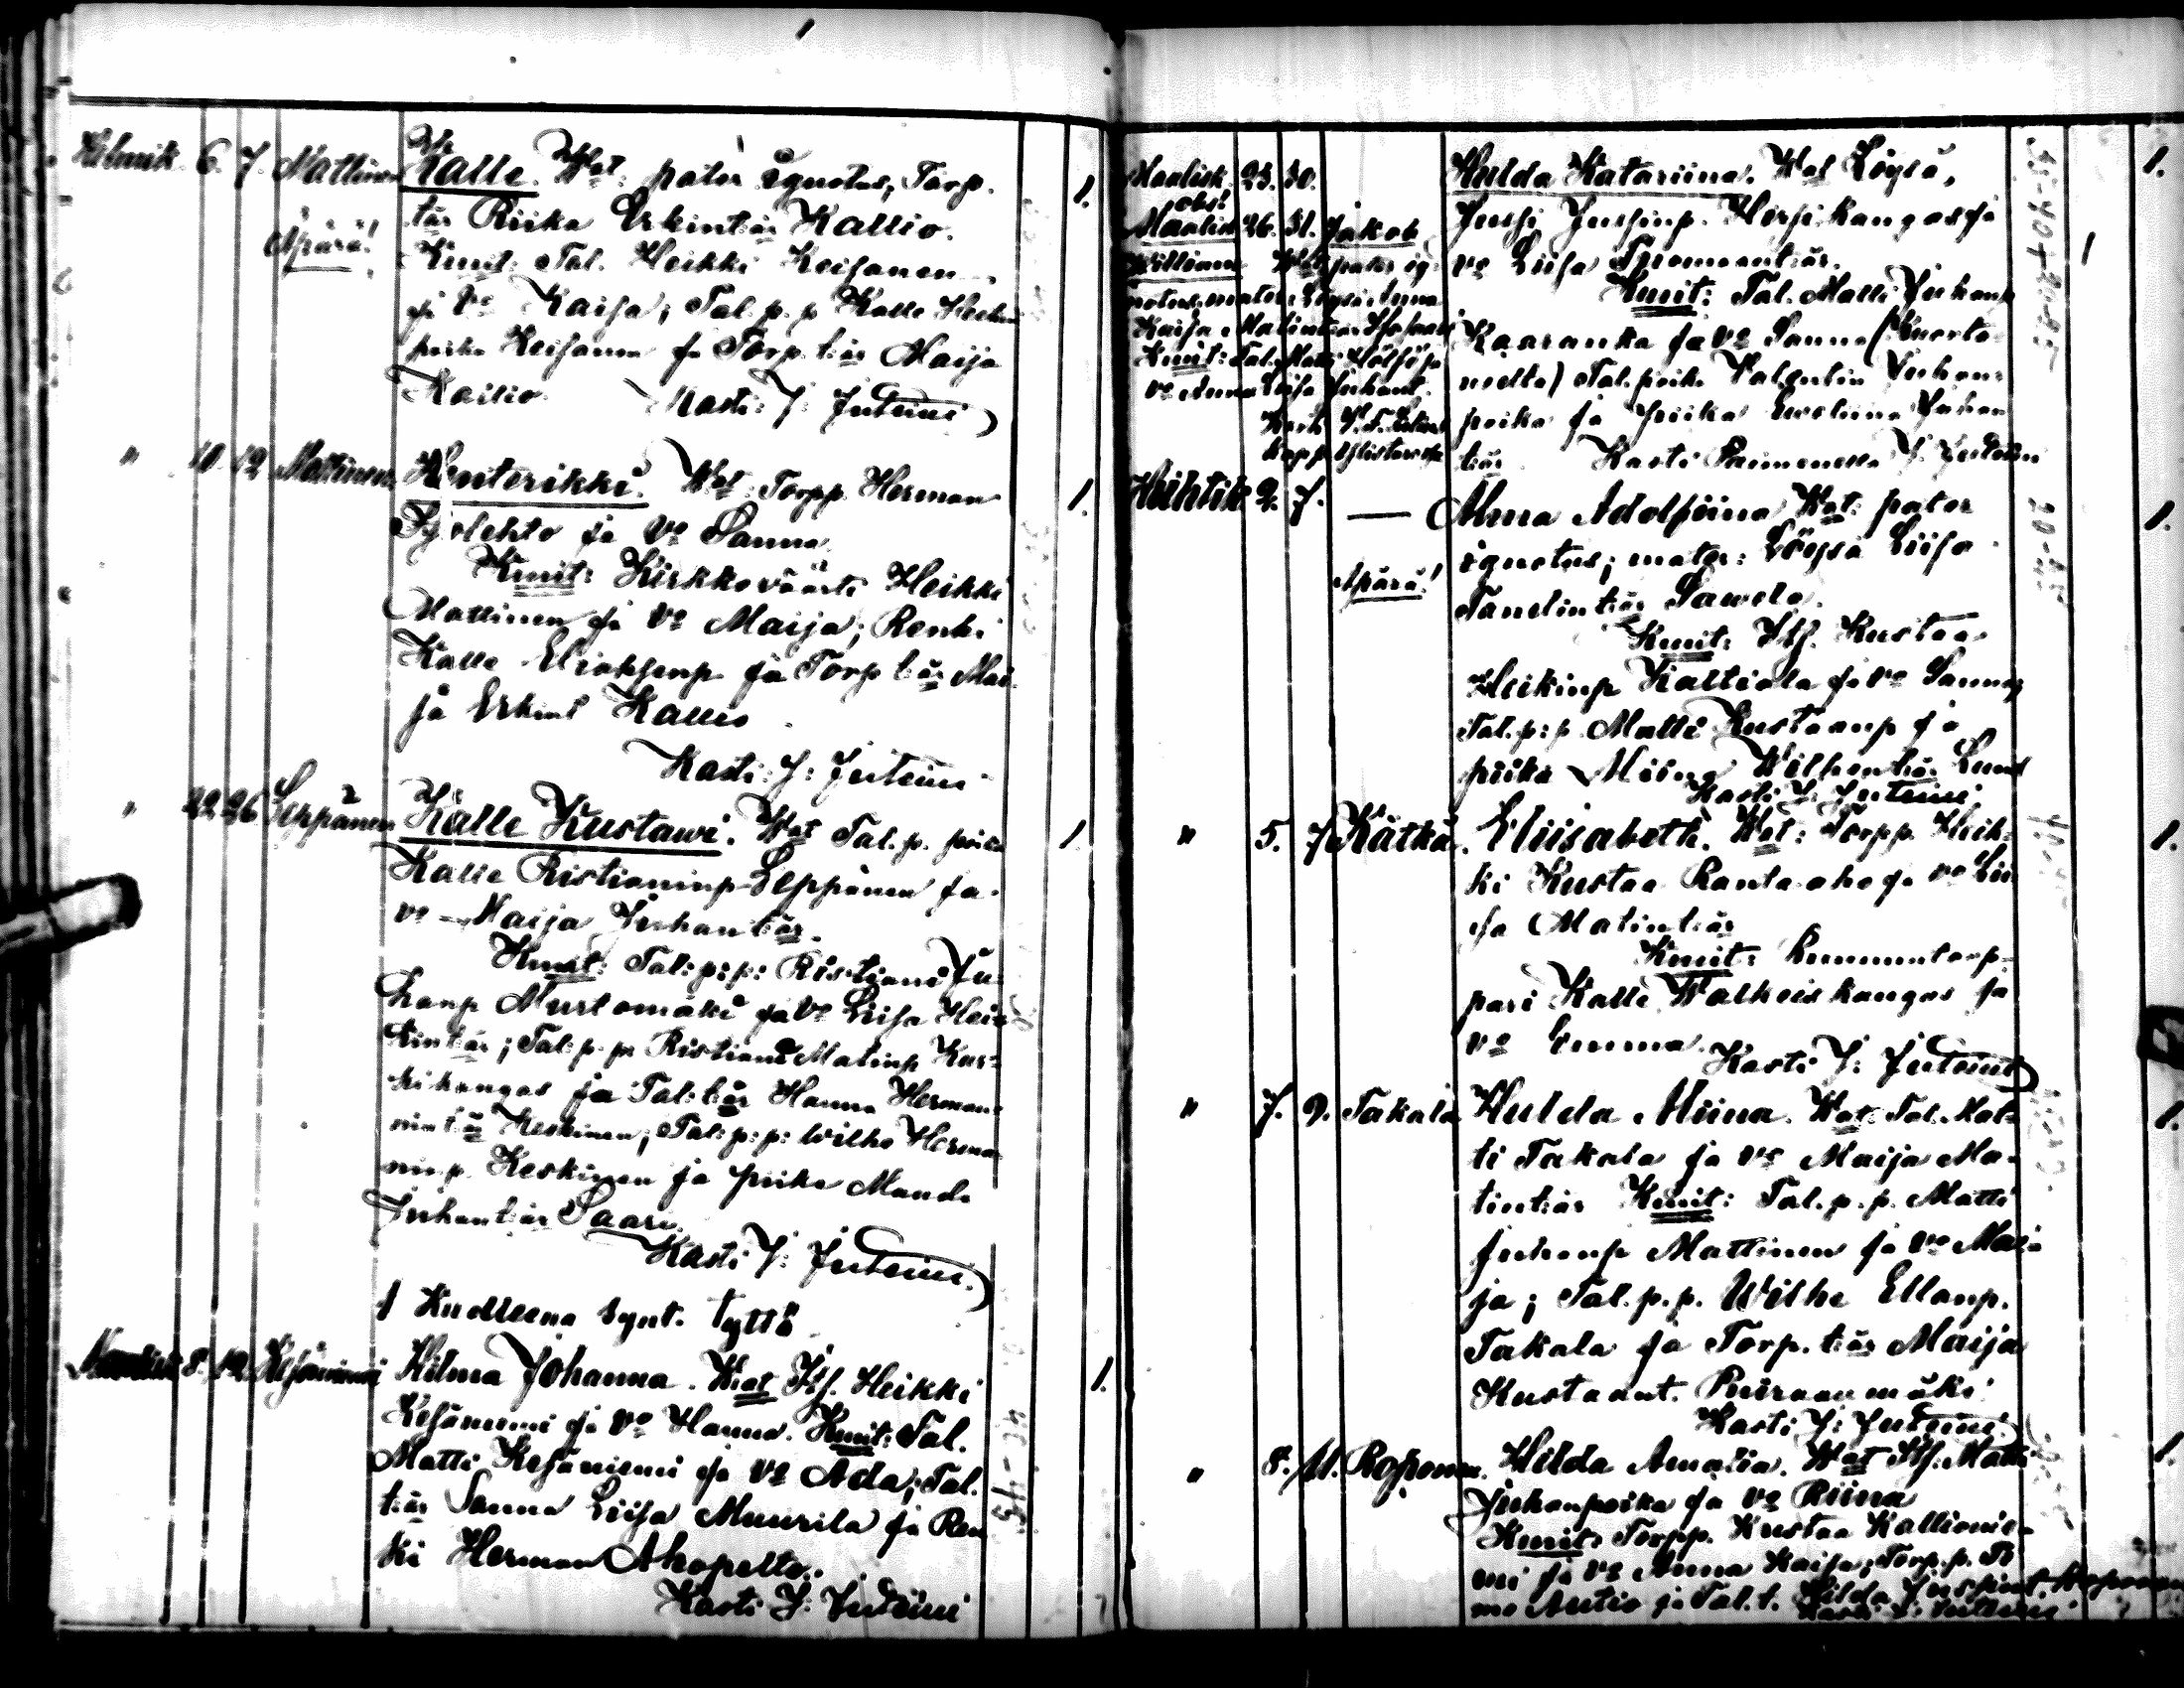 Helmik. 6. 7. Mattinen Kalle. Wat: pater ignotus, Torp.
tär Riika Erkintär Kallio. 1.
Äpärä! Kmit: Tal. Heikki Keisanen
ja Vo Kaisa; Tal. p. p. Kalle Heikin
poika Keisanen ja Torp. t:är Maija
Kallio. Kasti: J: Juteini
" 10 12 Mattinen Henterikki. Wat: Torpp. Herman 1.
Syrjelehto ja Vo Sanna.
Kmit: Kirkkoväärti Heikki
Mattinen ja Vo Maija; Renki
Kalle Eliaksenp. ja Torp t:är Mai
ja Erkint Kallio.
Kasti: J: Juteini
" 22 26 Leppänen Kalle Kustawi. Wat Tal. p. poika 1.
Kalle Ristianinp Leppänen ja
vo Maija Juhantiär.
Kmit: Tal: p: p: Ristiani Ju:
hanp Mustomäki ja Vo Liisa Hei:
kint:är; Tal: p. p: Ristiani Matinp Kur:
kikangas ja Tal: t:är Hanna Herman:
nint:är Keskinen; Tal: p: p: Wilho Herma
nip. Keskinen ja piika Manda
Juhant:är Saari.
Kasti J: Juteini.
1 Kuolleena synt. tyttö
Maalisk 8. 12. Kesäniemi Hilma Johanna. Wat Itf. Heikki 1.
Kesäniemi ja Vo Hanna. Kmit: Tal.
Matti Kesäniemi ja Vo Ada; Tal.
t:är Sanna Liisa Muurila ja Ren
ki Herman Ahopelto.
Kasti J: Juteini
Maalisk. 23. 30. Hulda Katariina. Wat Löysä, 1.
Jussi Jussinp. Hirsikangas ja
vo Liisa Tuomaant:är.
Kmit: Tal. Matti Juhanp
Kaaranka ja Vo Sanna (Kuorta
neelta) Tal. poika Valentin Juhan:
poika ja piika Eveliina Juhan
t:är Kasti J. Juteini
obs!
Maalisk 26. 31. Jakob
Williami Wat pater ig:
notus, mater: Löysä Anna
Kaisa Matintiär
Kmit: Tal. Matti Hölsö ja
vo Anna Liisa Juhant.
Huhtik 2. 7. — Alma Adolfiina Wat: pater 1.
ignotus; mater: Löysä Liisa
Äpärä! Sandint:är Sawela.
Kmit: Itf. Kustaa
Heikinp Kaltiala ja vo Sanna;
Tal. p: p. Matti Kustaanp ja
piika Miina Wilhont:är Lund
Kasti J: Juteini
" 5. 7 Kätkä. Eliisabeth. Wat: Torpp. Heik: 1.
ki Kustaa Ranta-aho ja vo Lii
sa Matint:är
Kmit: Kruununtorp-
pari Kalle Walkeiskangas ja
vo Emma. Kasti J: Juteini
" 7. 9. Takala Hulda Miina. Wat: Tal. Mat: 1.
ti Takala ja vo Maija Ma-
tint:är Kmit: Tal. p. p. Matti
Juhanp Mattinen ja vo Mai
ja; Tal. p. p. Wilho Ellanp.
Takala ja Torp. t:är Maija
Kustaant. Puiraanmäki
Kasti J: Juteini
" 8. 11. Roponen. Hilda Amalia. Wat Itf. Matti 1.
Juhanpoika ja vo Riina
Kmit: Torpp. Kustaa Kallionie-
mi ja vo Anna Kaisa; Torp. p. Tu
mo Autio ja Tal. t. Hilda
Kasti J: Juteini